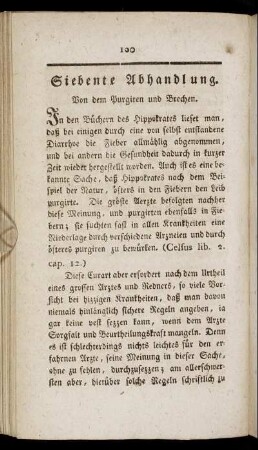 100
Siebente Abhandlung.
Von dem Purgiren und Brechen.
In den Büchern des Hippokrates lieset man,
daß bei einigen durch eine von selbst entstandene
Diarrhoe die Fieber allmählig abgenommen,
und bei andern die Gesundheit dadurch in kurzer
Zeit wieder hergestellt worden. Auch ist es eine be-
kannte Sache, daß Hippokrates nach dem Bei-
spiel der Natur, öfters in den Fiebern den Leib
purgirte. Die größte Aerzte befolgten nachher
diese Meinung, und purgirten ebenfalls in Fie-
bern; sie suchten fast in allen Krankheiten eine
Niederlage durch verschiedene Arzneien und durch
öfteres purgiren zu bewürken. (Celsus lib. 2.
cap. 12.)
Diese Curart aber erfordert nach dem Urtheil
eines grossen Arztes und Redners, so viele Vor-
sicht bei hizzigen Krankheiten, daß man davon
niemals hinlänglich sichere Regeln angeben, ja
gar keine vest sezzen kann, wenn dem Arzte
Sorgfalt und Beurtheilungskraft mangeln. Denn
es ist schlechterdings nichts leichtes für den er-
fahrnen Arzte, seine Meinung in dieser Sache,
ohne zu fehlen, durchzusezzen; am allerschwer-
sten aber, hierüber solche Regeln schriftlich zu